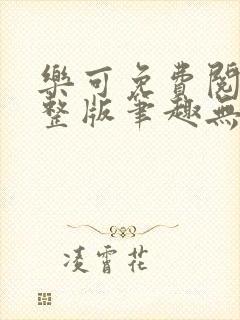 樂可免費閱
整版筆趣無
凌霄花